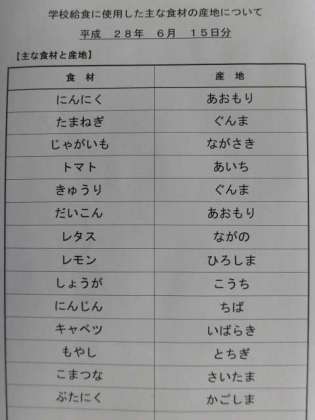 学校給食に使用した主な食材の産地について
平成　２８年　６月　１５日分
【主な食材と産地】
食 材　産 地
にんにく　あおもり
たまねぎ　ぐんま
じゃがいも　ながさき
トマト　あいち
きゅうり　ぐんま
だいこん　あおもり
レタス　ながの
レモン　ひろしま
しょうが　こうち
にんじん　ちば
キャベツ　いばらき
もやし　とちぎ
こまつな　さいたま
ぶたにく　かごしま